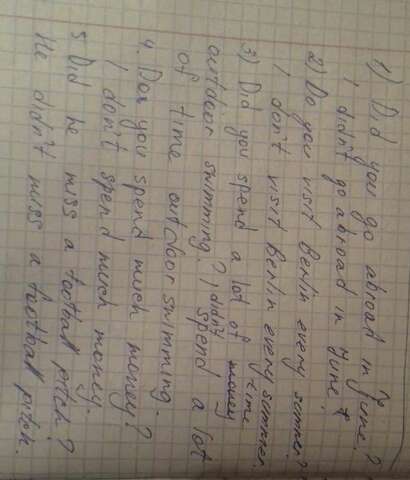 1) Did you go abroad in June?
I didn't go abroad in June.
2) Do you visit Berlin every summer?
I don't visit Berlin every summer.
3) Did you spend a lot of money time
outdoor swimming? I didn't spend a lot
of time outdoor swimming.
4. Do you spend much money?
I don't spend much money.
5 Did he miss a football pitch?
He didn't miss a football pitch.